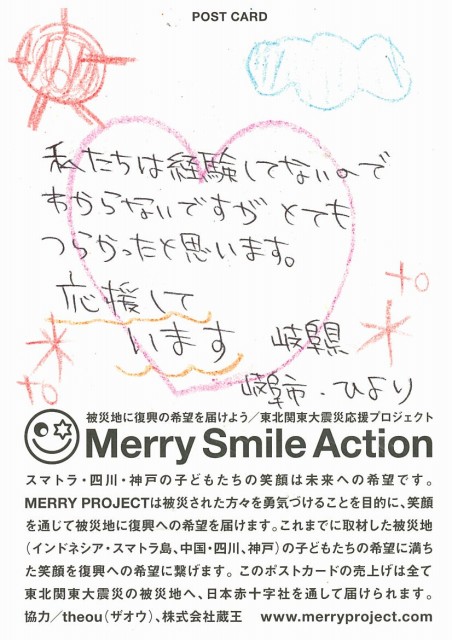 POST CARD
私たちは経験してないので
わからないですが とても
つらかったと思います。
応援して
います 岐阜県
岐阜市・ひより
被災地に復興の希望を届けよう／東北関東大震災応援プロジェクト
Merry Smile Action
スマトラ・四川・神戸の子どもたちの笑顔は未来への希望です。
MERRY PROJECTは被災された方々を勇気づけることを目的に、笑顔
を通じて被災地に復興への希望を届けます。これまでに取材した被災地
（インドネシア・スマトラ島、中国・四川、神戸）の子どもたちの希望に満ち
た笑顔を復興への希望に繋げます。このポストカードの売上げは全て
東北関東大震災の被災地へ、日本赤十字社を通して届けられます。
協力／theou（ザオウ）、株式会社蔵王 www.merryproject.com